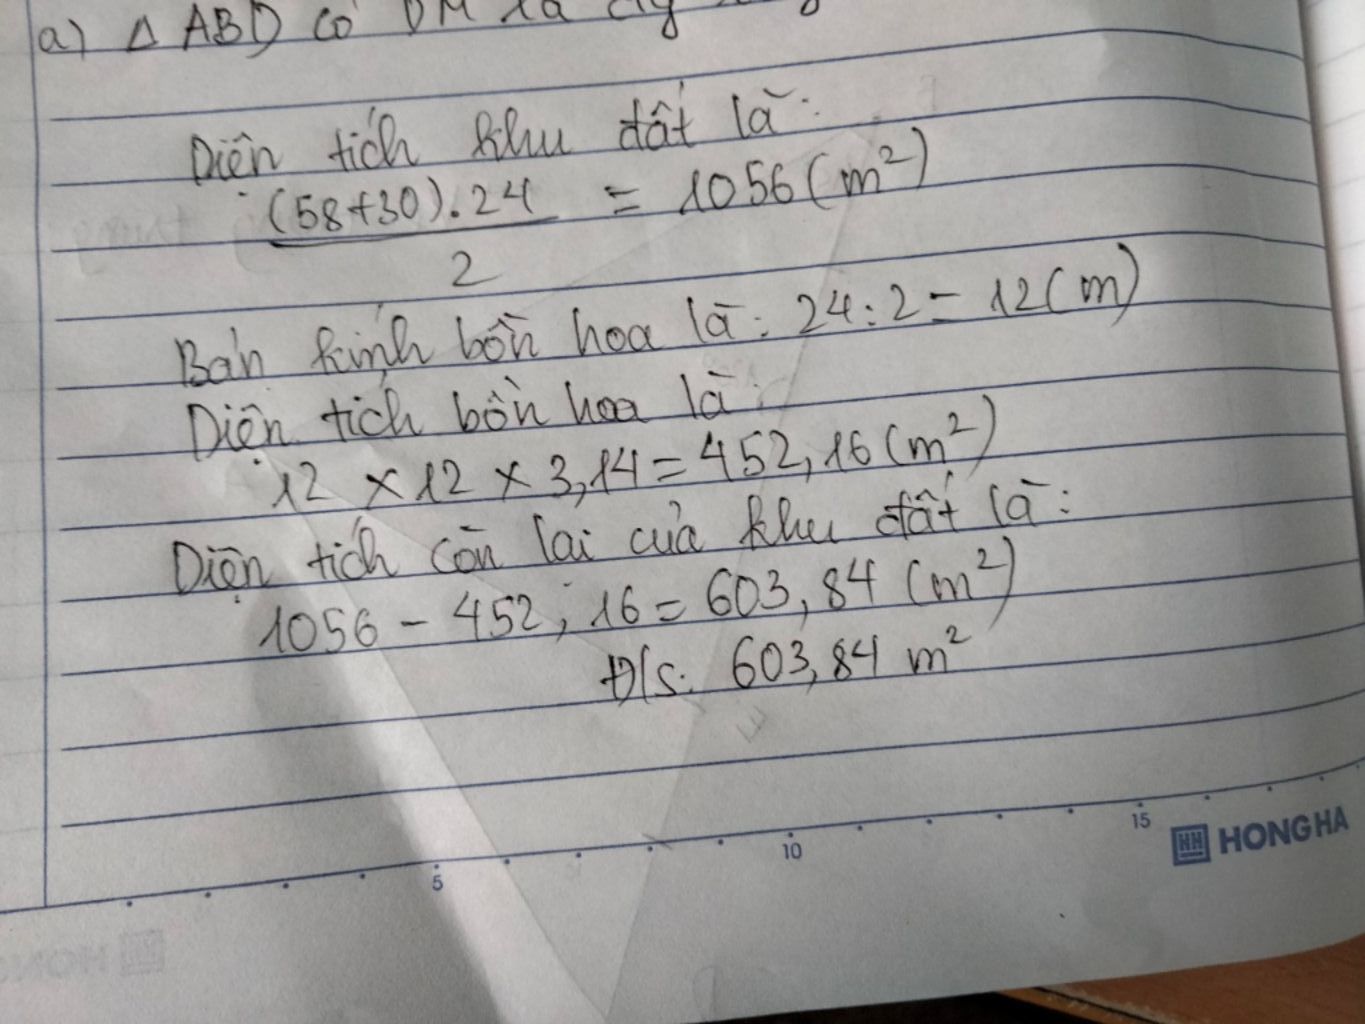 a) Δ ABD có DM là
Diện tích khu đất là:
(58+30).24 = 1056 (m²)
2
Bán kính bồn hoa là: 24:2 = 12 (m)
Diện tích bồn hoa là:
12 x 12 x 3,14 = 452,16 (m²)
Diện tích còn lại của khu đất là:
1056 - 452,16 = 603,84 (m²)
Đ/s: 603,84 m²
5
10
15
HH HONG HA